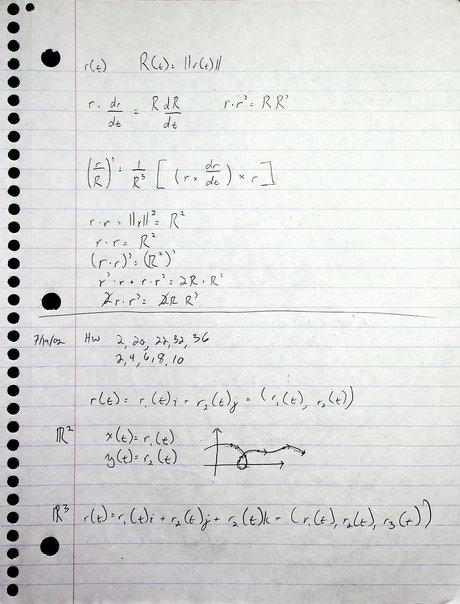 r(t) R(t) = ||r(t)||
r · dr/dt = R dR/dt r·r' = RR'
(r/R)' = 1/R³ [ (r × dr/dt) × r ]
r · r = ||r||² = R²
r · r = R²
(r · r)' = (R²)'
r' · r + r · r' = 2R · R'
2r · r' = 2R R'
7/19/02 HW 2, 20, 22, 32, 36
2, 4, 6, 8, 10
r(t) = r₁(t)i + r₂(t)j = (r₁(t), r₂(t))
ℝ² x(t) = r₁(t)
y(t) = r₂(t)
ℝ³ r(t) = r₁(t)i + r₂(t)j + r₂(t)k = (r₁(t), r₂(t), r₃(t))